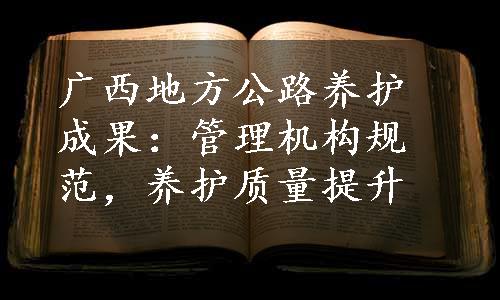 广西地方公路养护
成果：管理机构规
范，养护质量提升